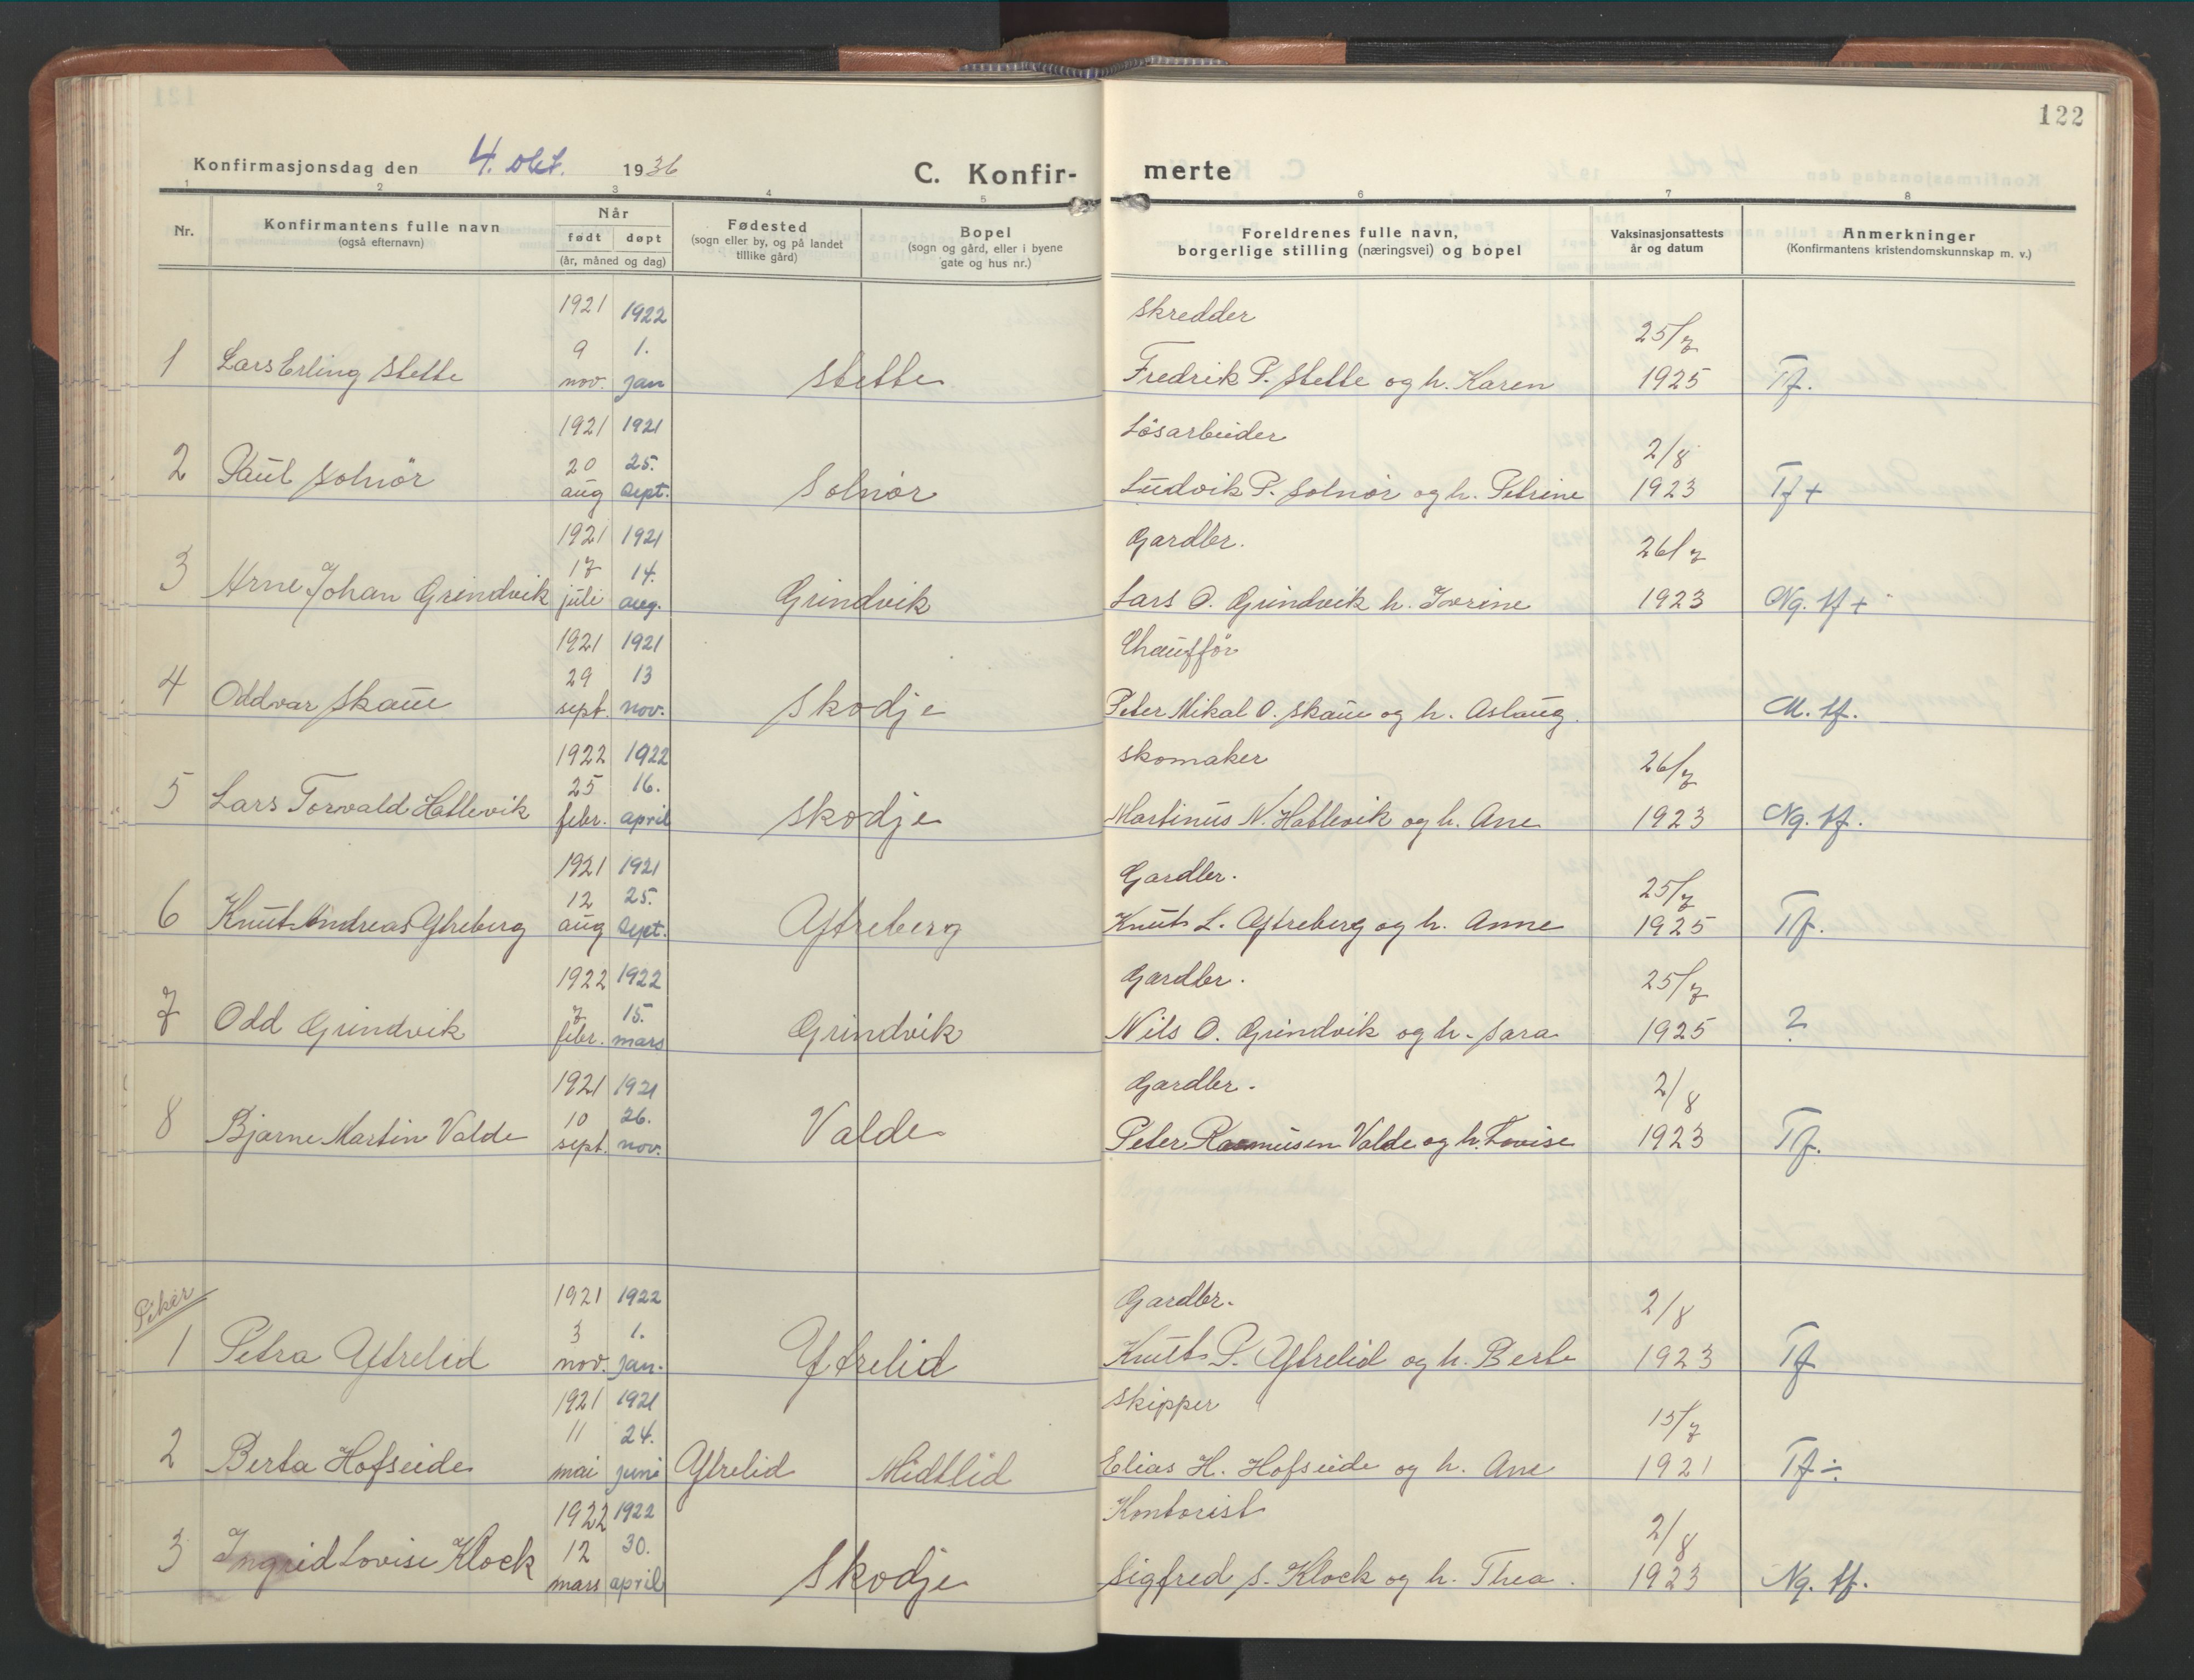 122
Konfirmasjonsdag den 4. okt. 1936
C. Konfir-
merte
1 2 3 4 5 6 7 8
Nr.
Konfirmantens fulle navn
(også efternavn)
Når
født døpt
(år, måned og dag)
Fødested
(sogn eller by, og på landet
tillike gård)
Bopel
(sogn og gård, eller i byene
gate og hus nr.)
Foreldrenes fulle navn,
borgerlige stilling (næringsvei) og bopel
Vaksinasjonsattests
år og datum
Anmerkninger
(Konfirmantens kristendomskunnskap m. v.)
1921 1922 Skredder
9 1. 25/7
1 Lars Erling Stette nov. jan Stette Fredrik P. Stette og h. Karen 1925 Tf.
1921 1921 Løsarbeider
20 25. 2/8
2 Paul Solnør aug sept. Solnør Ludvik P. Solnør og h. Petrine 1923 Tf +
1921 1921 Gardbr.
17 14. 26/7
3 Arne Johan Grindvik juli aug. Grindvik Lars O. Grindvik h. Iverine 1923 Ng. tf +
1921 1921 Chauffør
29 13
4 Oddvar Skaue sept. nov. Skodje Peter Mikal O. Skaue og h. Aslaug. M. tf.
1922 1922 Skomaker
25 16. 26/7
5 Lars Torvald Hatlevik febr. april Skodje Martinus N. Hatlevik og h. Ane 1923 Ng. tf.
1921 1921 Gardbr.
12 25. 25/7
6 Knut Andreas Ytreberg aug sept. Ytreberg Knut L. Ytreberg og h. Anne 1925 Tf.
1922 1922 Gardbr.
7 15. 25/7
7 Odd Grindvik febr. mars Grindvik Nils O. Grindvik og h. Sara 1925 ?
1921 1921 Gardbr.
10 26. 2/8
8 Bjarne Martin Valde sept. nov. Valde Peter Rasmusen Valde og h. Lovise 1923 Tf.
Piker
1921 1922 Gardbr.
3 1. 2/8
1 Petra Ytrelid nov. jan. Ytrelid Knut P. Ytrelid og h. Berte 1923 Tf
1921 1921 Skipper
11 24. 15/7
2 Berta Hofseide mai juni Ytrelid Midtlid Elias H. Hofseide og h. Ane 1921 Tf ÷
1922 1922 Kontorist
12 30. 2/8
3 Ingrid Lovise Klock mars april Skodje Sigfred S. Klock og h. Thea. 1923 Ng. tf.